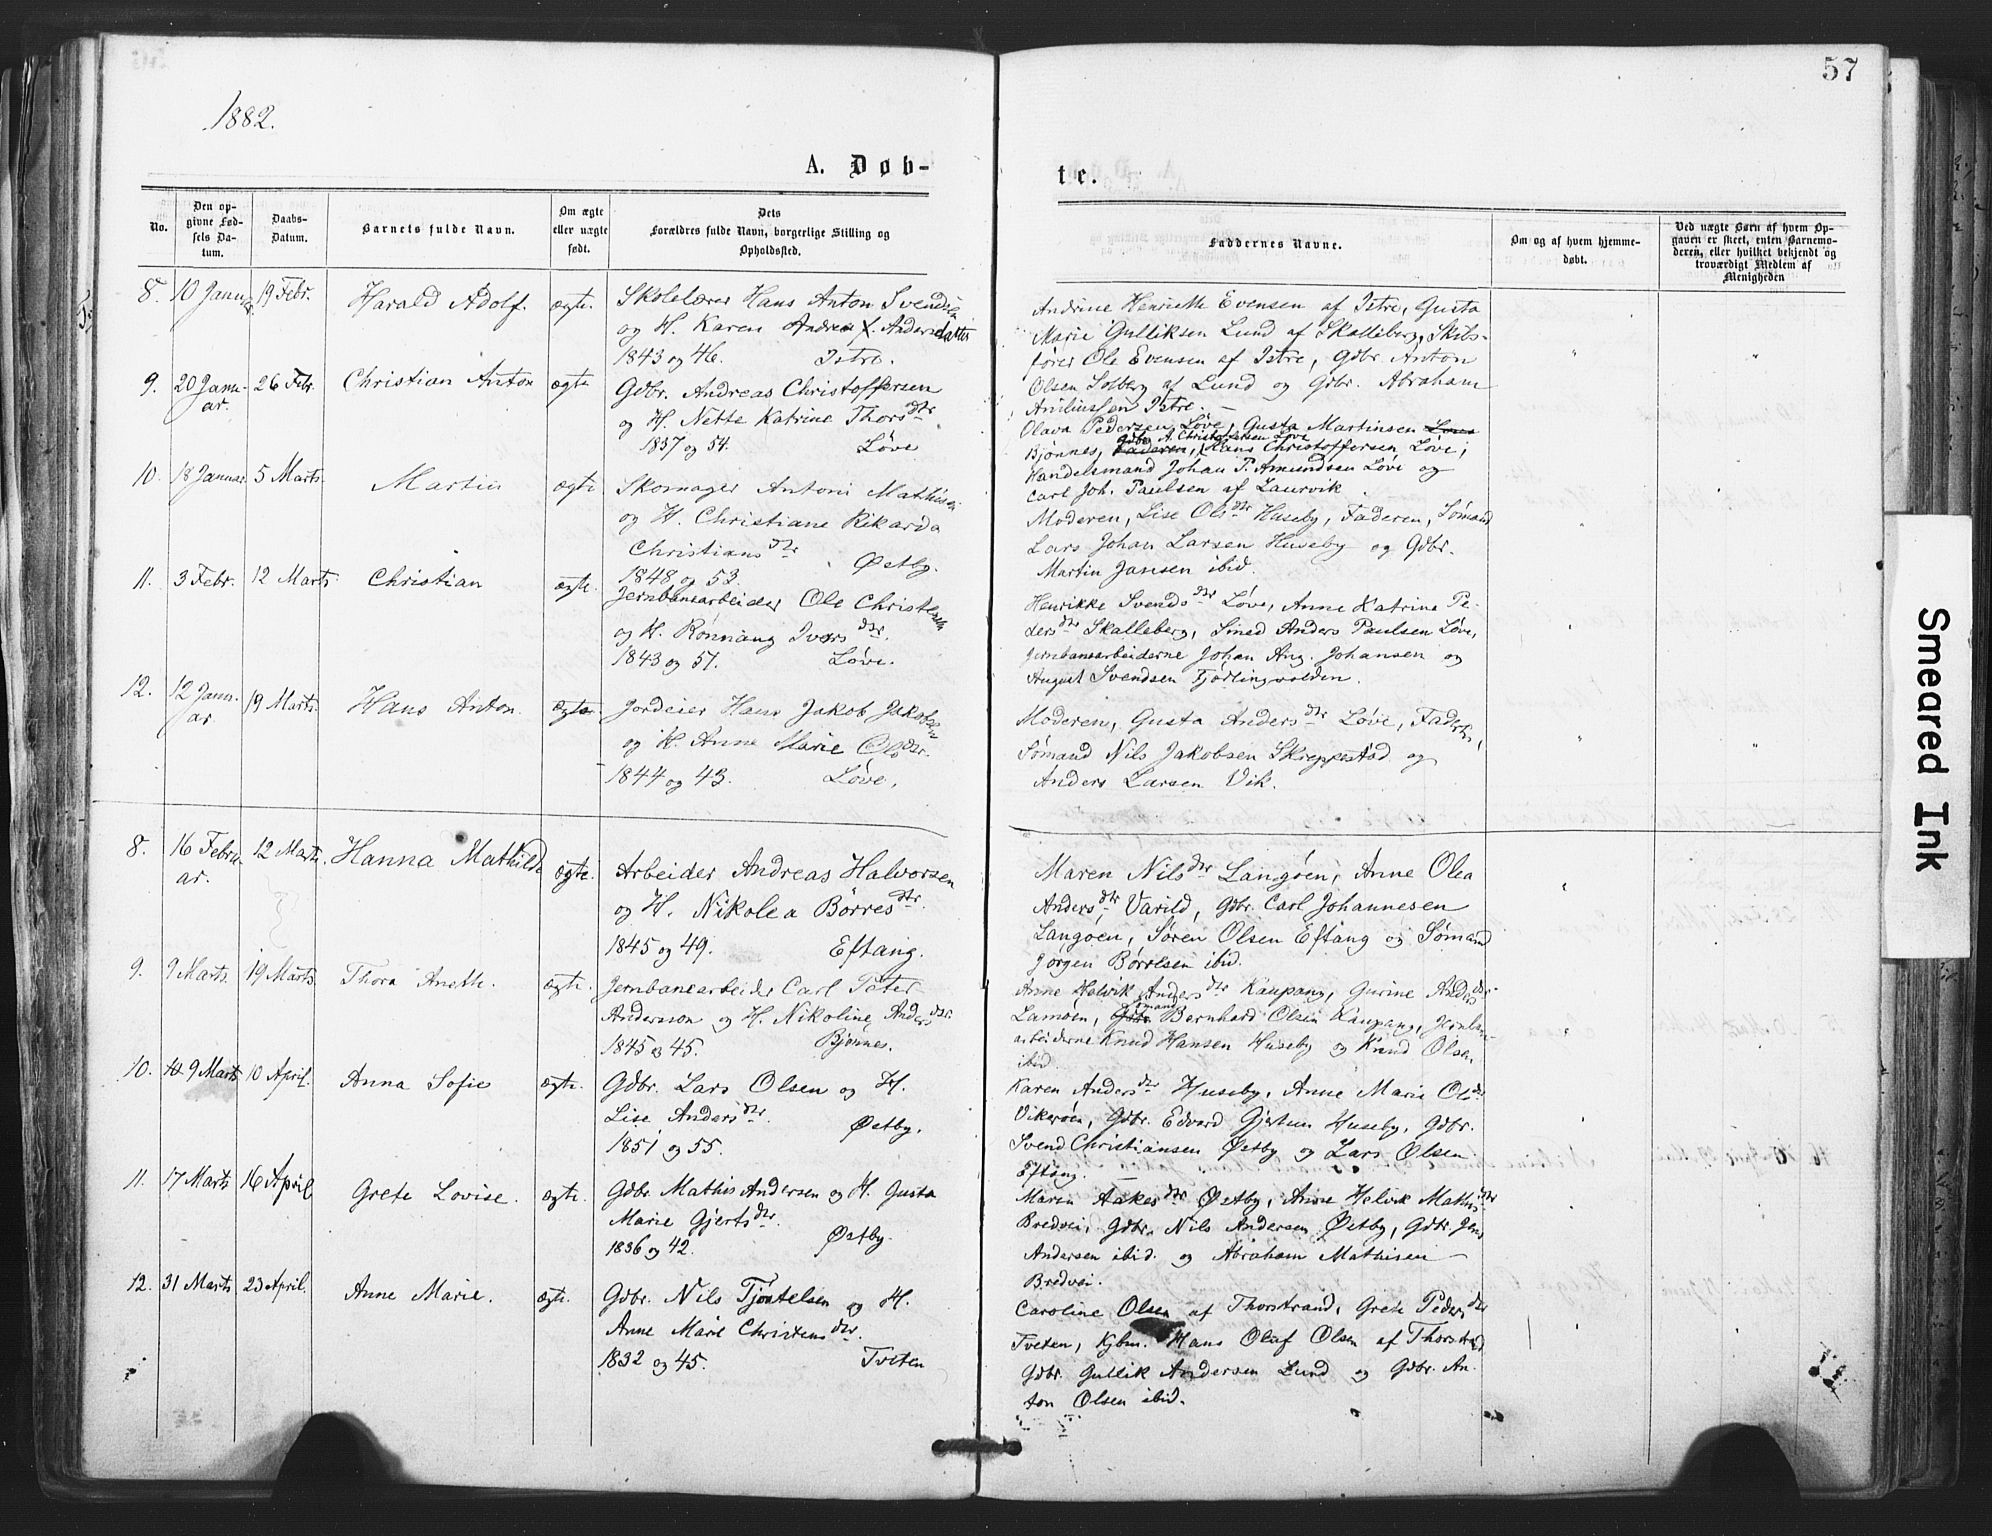 57
1882.
A. Døb-
te.
No.
Den opgivne Fødsels Datum.
Daabs-Datum.
Barnets fulde Navn.
Om ægte eller uægte født.
Dets Forældres fulde Navn, borgerlige Stilling og Opholdssted.
Faddernes Navne.
Om og af hvem hjemmedøbt.
Ved uægte Børn af hvem Opgaven er skeet, enten Barnemoderen, eller hvilket bekjendt og troværdigt Medlem af Menigheden
8. 10 Januar 19 Febr. Harald Adolf. ægte.
Skolelærer Hans Anton Svendsen
og H. Karen Andrea Andersdatter
1843 og 46. Istre.
Andrine Henriette Evensen af Istre, Gusta
Marie Gulliksen Lund af Skalleberg, Skibs-
fører Ole Evensen af Istre, Gdbr. Anton
Olsen Solberg af Lund og Gdbr. Abraham
Istre.
9. 20 Janu-ar. 26 Febr. Christian Anton ægte
Gdbr. Andreas Christoffersen
og H. Nette Katrine Thorsdtr
1837 og 54. Løve
Olava Pedersen Løve, Gusta Martinsen Løve
Gdbr. A. Christoffersen Løve
Bjönnes, Faderen, Hans Christoffersen Løve,
Handelsmand Johan P. Amundsen Løve og
Carl Joh. Paulsen af Laurvik.
10. 18 Januar 5 Marts. Martin ægte
Skomager Anton Mathisen
og H. Christiane Rikarda
Christiansdtr
1848 og 53. Østby.
Moderen, Lise Olsdtr Huseby, Faderen, Sömand
Lars Johan Larsen Huseby og Gdbr.
Martin Jansen ibid.
11. 3 Febr. 12 Marts. Christian ægte.
Jernbanearbeider Ole Christensen
og H. Rönnaug Iversdtr.
1843 og 51. Løve.
Henrikke Svendsdtr Løve, Anne Katrine Pe-
dersdtr Skalleberg, Smed Anders Paulsen Løve,
Jernbanearbeiderne Johan Aug. Johansen og
August Svendsen
12. 12 Janu-ar 19 Marts. Hans Anton. ægte
Jordeier Hans Jakob Jakobsen
og H. Anne Marie Olsdtr.
1844 og 43. Løve.
Moderen, Gusta Andersdtr Løve, Faderen,
Sömand Nils Jakobsen Skreppestad og
Anders Larsen Vik.
8. 16 Febru-ar. 12 Marts. Hanna Mathilde ægte.
Arbeider Andreas Halvorsen
og H. Nikolea Börresdtr.
1845 og 49. Eftang.
Maren Nilsdtr Langöen, Anne Olea
Andersdtr Varild, Gdbr. Carl Johannesen
Langöen, Søren Olsen Eftang og Sømand
Jørgen Børresen ibid.
9. 9 Marts. 19 Marts. Thora Aneth. ægte.
Jernbanearbeider Carl Peter
Andersson og H. Nikoline Andersdtr.
1845 og 45. Bjønnes.
Anne Helvik Andersdtr Kaupang, Gurine Andersdtr
Lamöen, Gdbr. Sömand Bernhard Olsen Kaupang, Jernban-
arbeiderne Knud Hansen Huseby og Knud Olsen
ibid.
10. 9 Marts 10 April. Anna Sofie ægte.
Gdbr. Lars Olsen og H.
Lise Andersdtr.
1851 og 55. Østby.
Karen Andersdtr Huseby, Anne Marie Olsdtr
Vikerøen, Gdbr. Edvard Gjertsen Huseby, Gdbr.
Svend Christiansen Østby og Lars Olsen
Eftang.
11. 17 Marts 16 April Grete Lovise. ægte.
Gdbr. Mathis Andersen og H. Gusta
Marie Gjertsdtr.
1836 og 42. Østby.
Maren Aakesdtr Østby, Anne Helvik Mathisdtr
Bredvei, Gdbr. Nils Andersen Østby, Gdbr. Jens
Andersen ibid. og Abraham Mathisen
Bredvei.
12. 31 Marts 23 April. Anne Marie. ægte.
Gdbr. Nils Tjostelsen og H.
Anne Marie Christensdtr.
1832 og 45. Tveten
Caroline Olsen af Thorstrand, Grete Pedersdtr
Tveten, Kjbm. Hans Olaf Olsen af Thorstrand
Gdbr. Gullik Andersen Lund og Gdbr. An-
ton Olsen ibid.
Smeared Ink